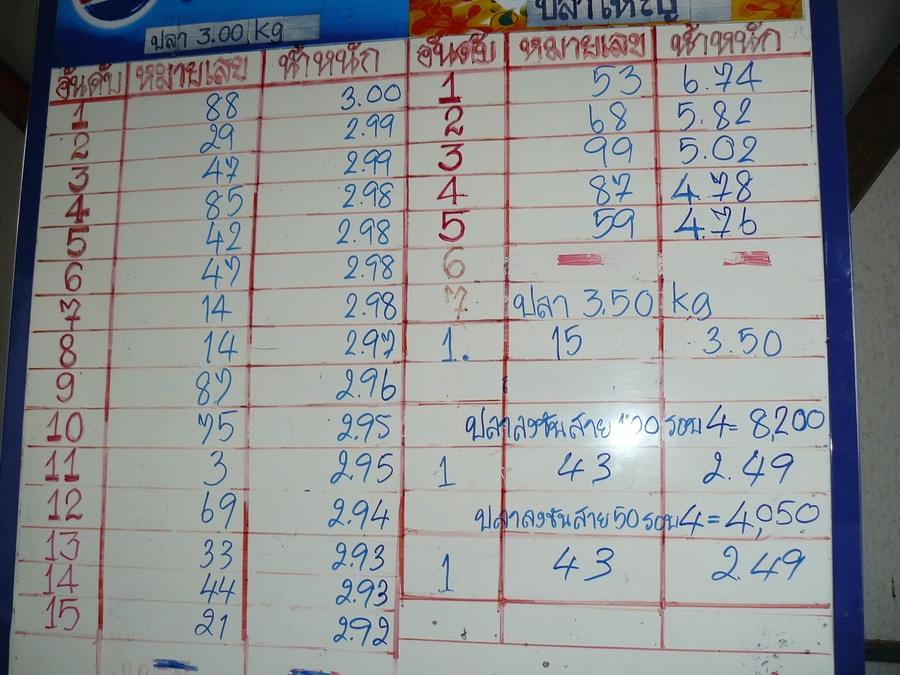 ปลา 3.00 kg
อันดับ หมายเลข น้ำหนัก
1 88 3.00
2 29 2.99
3 47 2.99
4 85 2.98
5 42 2.98
6 47 2.98
7 14 2.98
8 14 2.97
9 87 2.96
10 75 2.95
11 3 2.95
12 69 2.94
13 33 2.93
14 44 2.93
15 21 2.92
ปลาใหญ่
อันดับ หมายเลข น้ำหนัก
1 53 6.74
2 68 5.82
3 99 5.02
4 87 4.78
5 59 4.76
6
7 ปลา 3.50 kg
1. 15 3.50
ปลาลงขันสาย 100 รอบ 4 = 8,200
1 43 2.49
ปลาลงขันสาย 50 รอบ 4 = 4,050
1 43 2.49